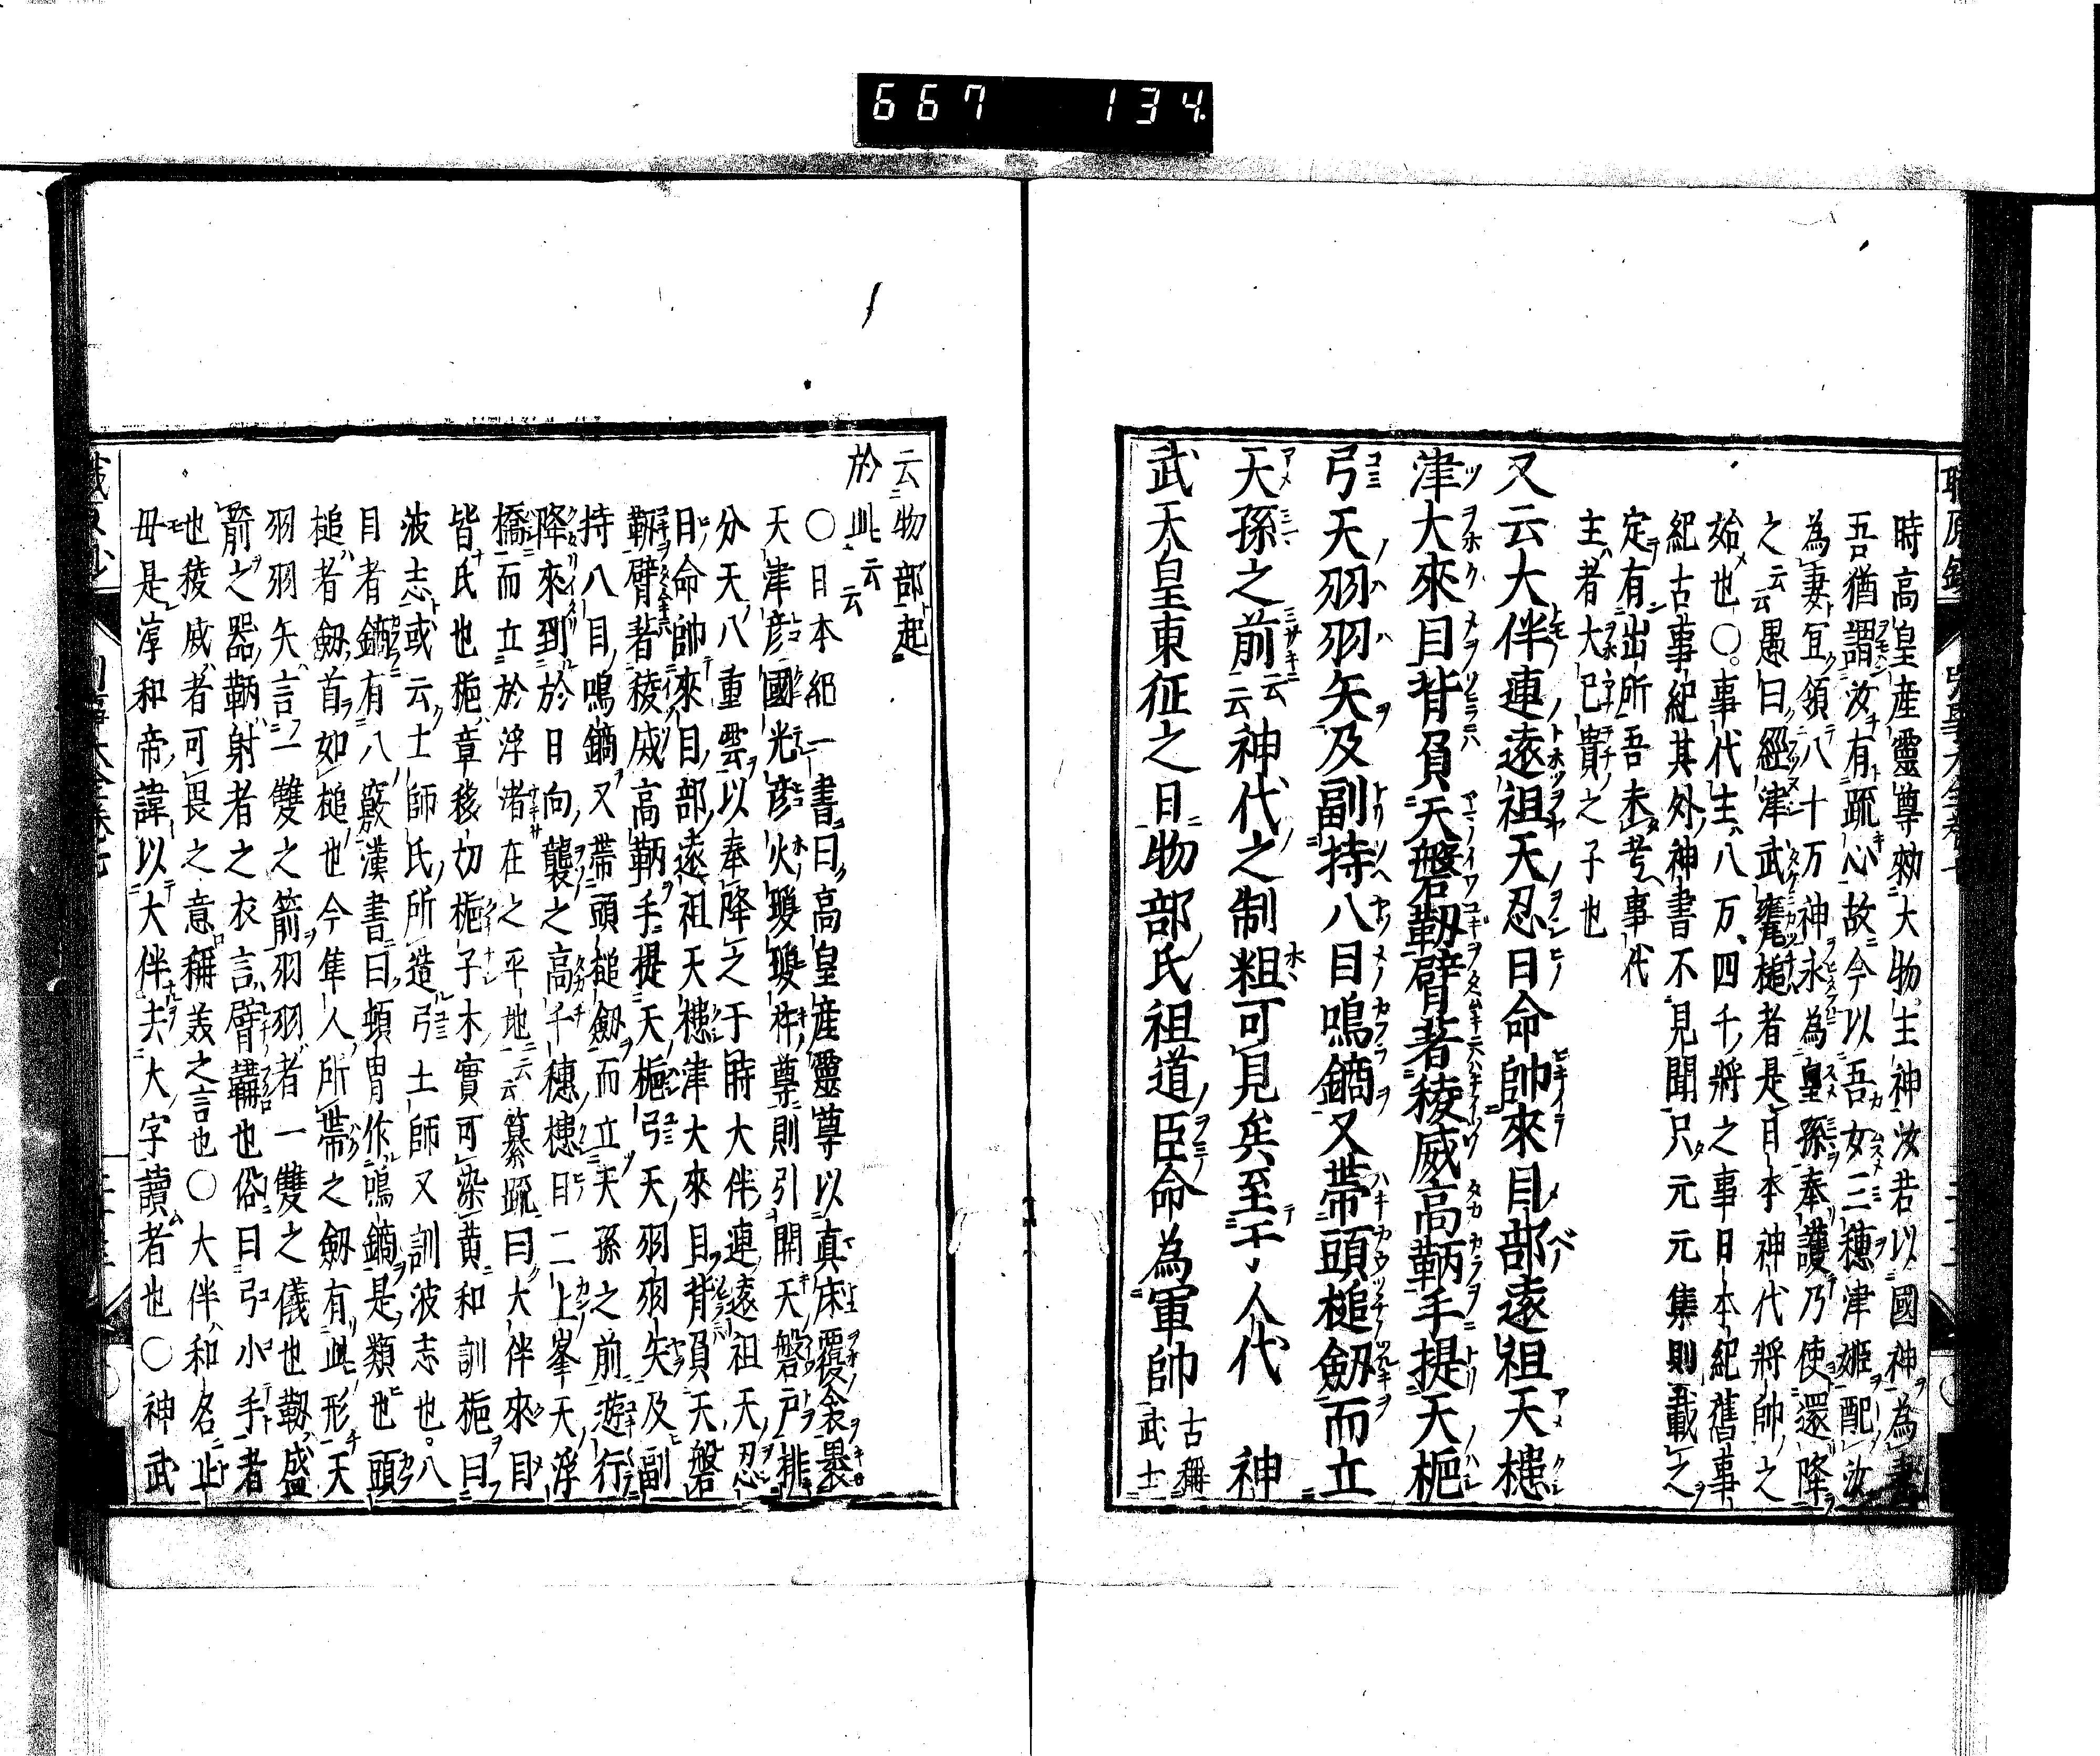 667 134
時高皇産靈尊勅大物主神汝若以國神為妻
吾猶謂汝有疏心故今以吾女三穗津姬配汝
為妻宜領八十万神永為皇孫奉護乃使還降
之云云愚曰經津武甕槌者是日本神代將帥之
始也〇事代主八万四千將之事日本紀舊事
紀古事紀其外神書不見聞只元元集則載之
定有出所吾未考事代
主者大己貴之子也
又云大伴連遠祖天忍日命帥來目部遠祖天槵
津大來目背負天磐靫臂著稜威高鞆手提天梔
弓天羽羽矢及副持八目鳴鏑又帶頭槌劔而立
天孫之前云云神代之制粗可見矣至于人代 神
武天皇東征之日物部氏祖道臣命為軍帥古稱武士
云物部起
於此云云
〇日本紀一書曰高皇産靈尊以真床覆衾褁
天津彦國光彦火瓊瓊杵尊則引開天磐戸排
分天八重雲以奉降之于時大伴連遠祖天忍
日命帥來目部遠祖天槵津大來目背負天磐
靫臂著稜威高鞆手提天梔弓天羽羽矢及副
持八目鳴鏑又帶頭槌劔而立天孫之前遊行
降來到於日向襲之高千穗槵日二上峯天浮
橋而立於浮渚在之平地云云纂疏曰大伴來目
皆氏也梔章移切梔子木實可染黄和訓梔曰
波志或云土師氏所造弓土師又訓波志也八
目者鏑有八竅漢書曰頓冒作鳴鏑是類也頭
槌者劔首如槌也今隼人所帶之劔有此形天
羽羽矢言一雙之箭羽羽者一雙之儀也靫盛
箭之器鞆射者之衣言臂韝也俗曰弓小手者
也稜威者可畏之意稱美之言也〇大伴和名止
毋是淳和帝諱以大伴夫大字讀者也〇神武